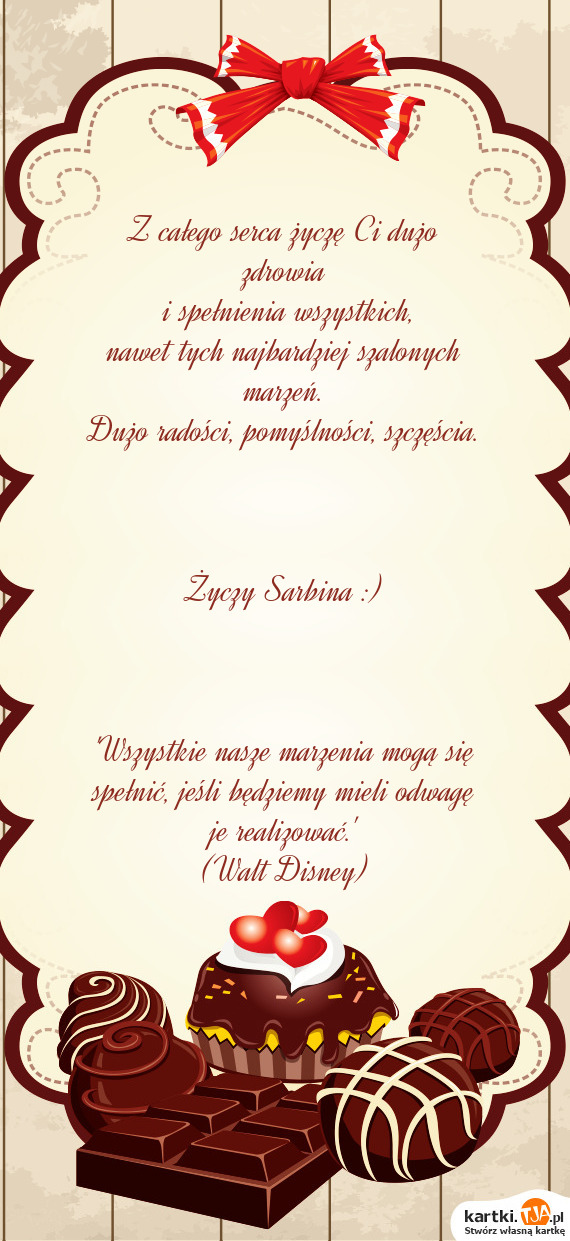 Z całego serca życzę Ci dużo
zdrowia
i spełnienia wszystkich,
nawet tych najbardziej szalonych
marzeń.
Dużo radości, pomyślności, szczęścia.
Życzy Sarbina :)
"Wszystkie nasze marzenia mogą się
spełnić, jeśli będziemy mieli odwagę
je realizować."
(Walt Disney)
kartki.TJA.pl
Stwórz własną kartkę